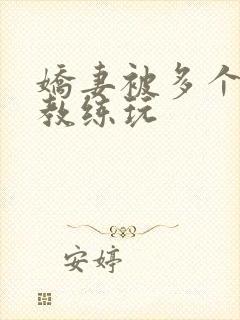 嬌妻被多个
教练玩
安婷